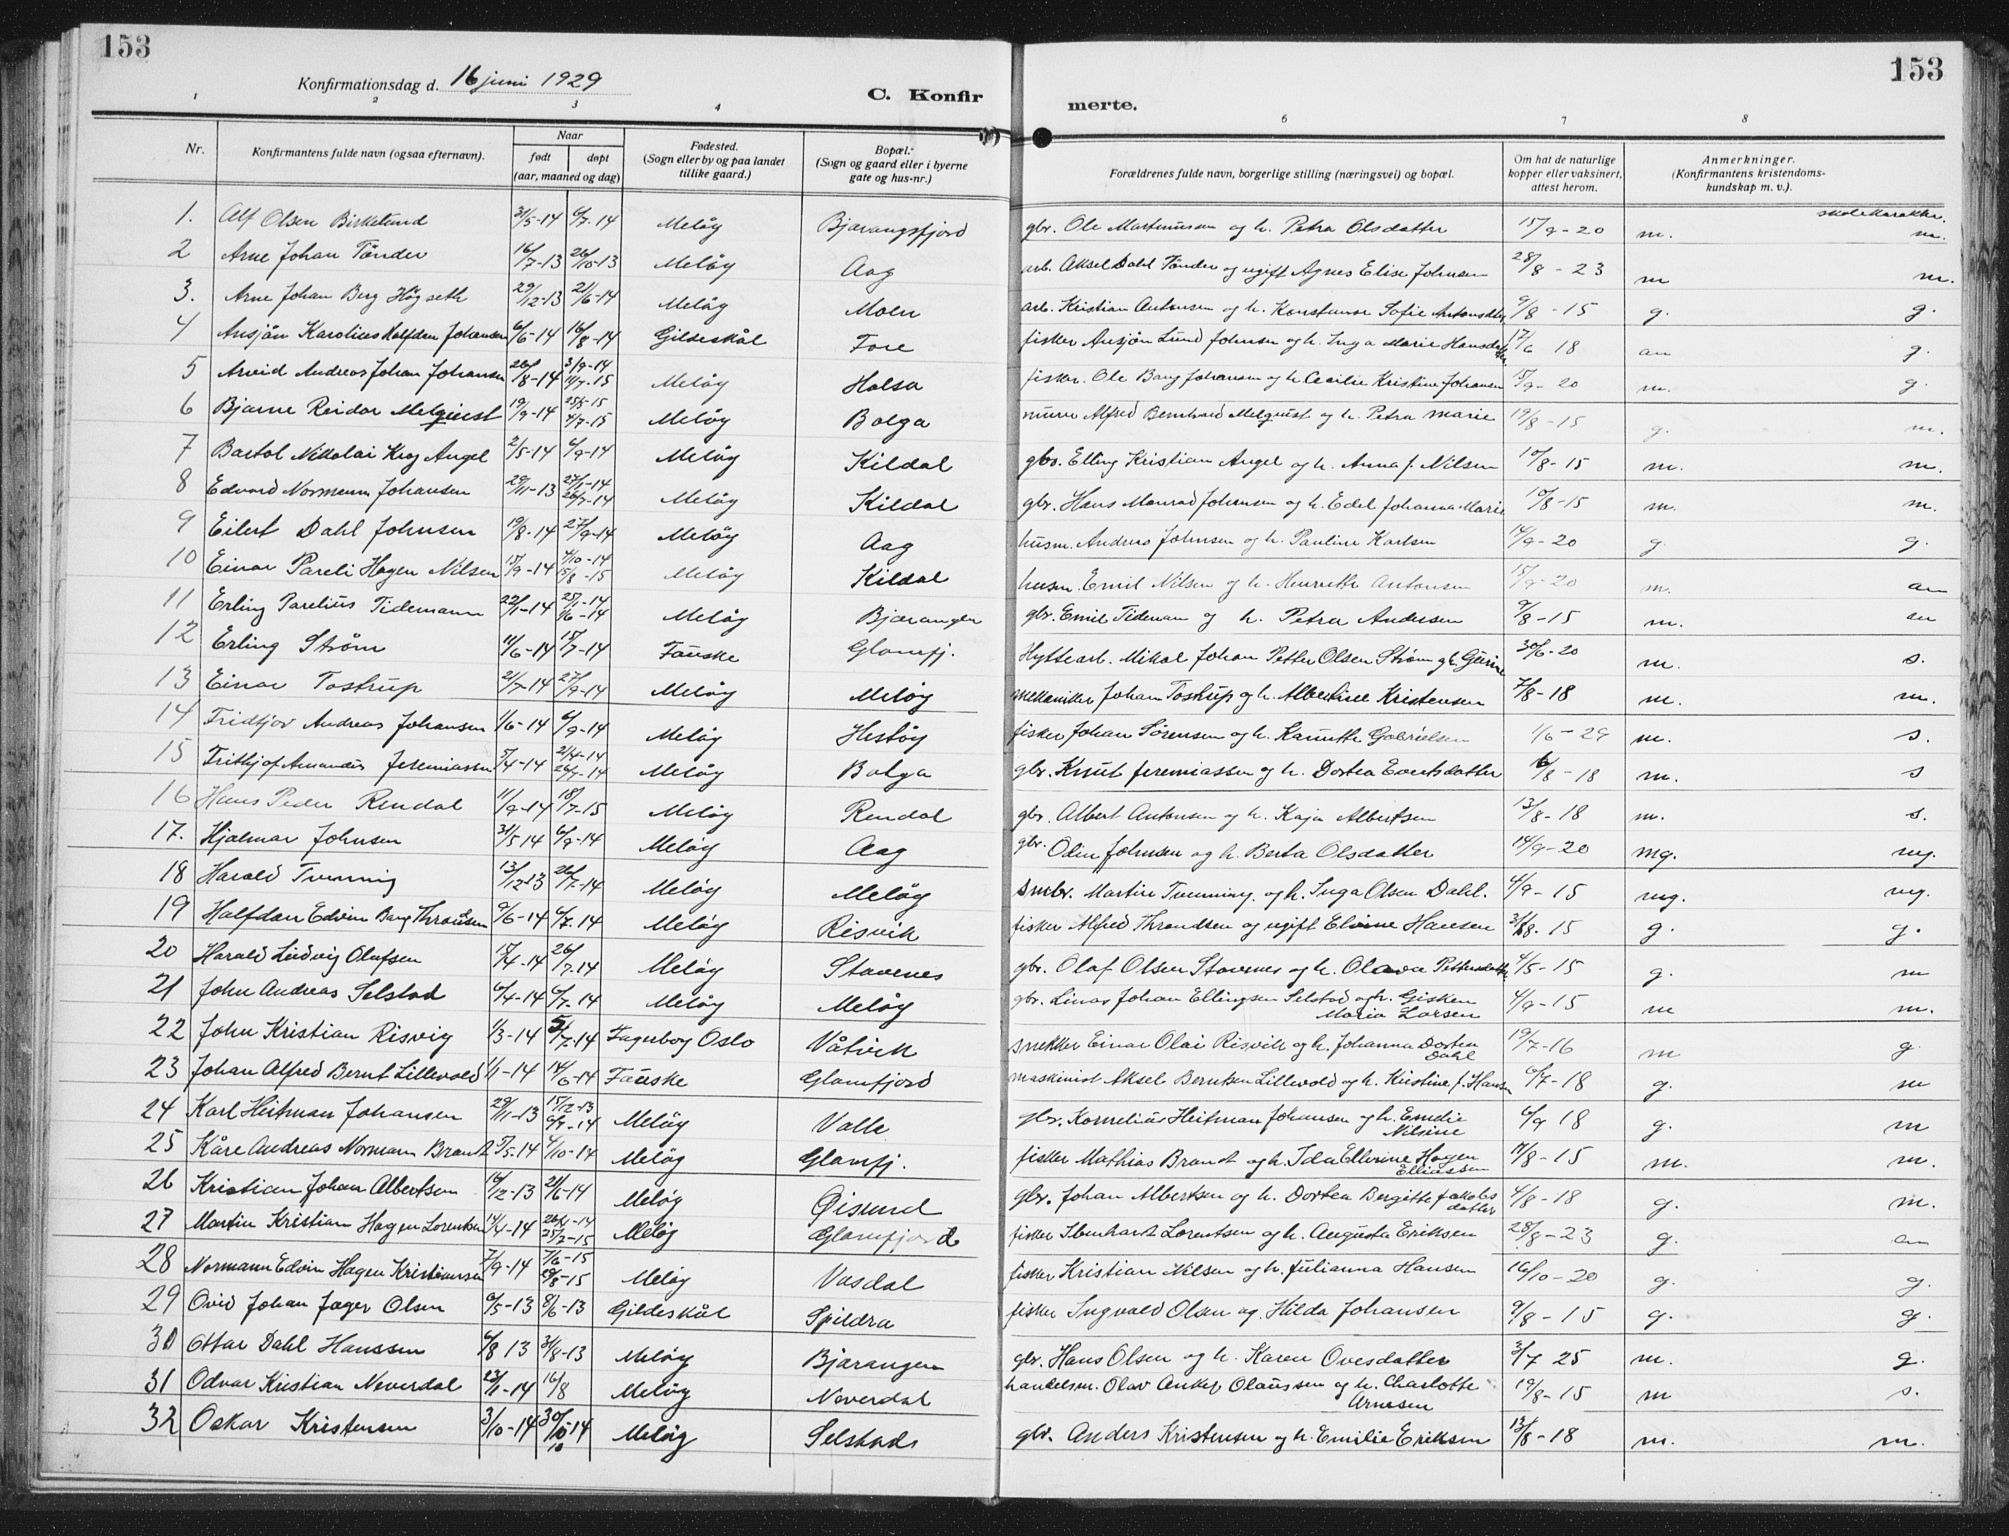 153
153
Konfirmationsdag d. 16 juni 1929
C. Konfirmerte.
1 2 3 4 5 6 7 8
Nr. Konfirmantens fulde navn (ogsaa efternavn). Naar født døpt (aar, maaned og dag) Fødested. (Sogn eller by og paa landet tillike gaard.) Bopæl. (Sogn og gaard eller i byerne gate og hus-nr.) Forældrenes fulde navn, borgerlige stilling (næringsvei) og bopæl. Om hat de naturlige kopper eller vaksinert, attest herom. Anmerkninger. (Konfirmantens kristendomskundskap m. v.).
skolekarakter.
1. Alf Olsen Birkelund 31/5-14 6/7-14 Meløy Bjærangsfjord gbr. Ole Martinussen og h. Petra Olsdatter 15/9-20 m. m.
2 Arne Johan Tønder 16/7-13 26/10-13 Meløy Aag arb. Aksel Dahl Tønder og ugift Agnes Elise Johnsen 28/8-23 m m.
3. Arne Johan Berg Høgseth 29/12-13 21/6-14 Meløy Moen arb. Kristian Antonsen og h. Konstanse Sofie 9/8-15 g. g.
4 Ansjøn Karolius Halfdan Johansen 6/6-14 16/8-14 Gildeskål Fore fisker Ansjøn Lund Johnsen og h. Inga Marie Hansdatter 17/6 18 m g.
5 Arvid Andreas Johan Johansen 26/8-14 Meløy Halsa fisker. Ole Bang Johansen og h. Cecilie Kristine Johansen 15/9-20 m. g.
6 Bjarne Reidar Melquist 19/9-14 25/5-15 4/7-15 Meløy Bolga murer Alfred Bernhard Melquist og h. Petra Marie 19/8-15 g. m.
7 Bartol Nikolai Krog Angel 2/5-14 6/9-14 Meløy Kildal gbr. Elling Kristian Angel og h. Anna f. Nilsen 10/8-15 m. m.
8 Edvard Normann Johansen 29/11-13 27/1-14 26/7-14 Meløy Kildal gbr. Hans Monrad Johansen og h. Edel Johanna Marie 10/8-15 m. m.
9 Eilert Dahl Johnsen 19/8-14 27/9-14 Meløy Aag husm. Andreas Johnsen og h. Pauline Karlsen 14/9-20 g. g.
10 Einar Pareli Hagen Nilsen 15/9-14 4/10-14 15/8-15 Meløy Kildal husm. Emil Nilsen og h. Henrette Antonsen 15/9-20 m. m
11 Erling Parelius Tidemann 22/1-14 25/1-14 1/6-14 Meløy Bjærangen gbr. Emil Tideman og h. Petra Andersen 9/8-15 m. m
12 Erling Strøm 11/6-14 15/7-14 Fauske Glomfj. Hyttearb. Mikal Johan Petter Olsen Strøm og h. Gurine 30/6-20 m. s.
13 Einar Tostrup 21/7-14 27/9-14 Meløy Meløy mekaniker Johan Tostrup og h. Albertine Kristensen 7/8-18 m. m.
14 Fridtjov Andreas Johansen 1/6-14 6/9-14 Meløy Hestøy fisker Johan Sørensen og h. Kanutte Gabrielsen 1/6-29 m. s.
15 Frithjof Amandus Jeremiassen 5/4-14 21/4-14 26/7-14 Meløy Bolga gbr. Knut Jeremiassen og h. Dortea Evertsdatter 6/8-18 m. s
16 Hans Peder Rendal 11/9-14 18/7-15 Meløy Rendal gbr. Albert Antonsen og h. Kaja Albertsen 13/8-18 m. s.
17. Hjalmar Johnsen 31/5 14 6/9-14 Meløy Aag gbr. Odin Johnsen og h. Berta Olsdatter 14/9-20 mg. mg.
18 Harald Tvenning 13/12-13 26/7-14 Meløy Meløy Smbr. Martin Tvenning og h. Inga Olsen Dahl. 4/9-15 mg. mg.
19 Halfdan Edvin Bang Throndsen 9/6-14 6/7-14 Meløy Risvik fisker Alfred Throndsen og ugift Elvine Hansen 31/8-15 g. g.
20 Harald Ludvig Olafsen 15/4-14 26/7-14 Meløy Stavenes gbr. Olaf Olsen Stavenes og h. Olava Pettersdatter 4/5-15 g. m
21 John Andreas Selstad 6/4-14 6/7-14 Meløy Meløy gbr. Linas Johan Ellingsen Selstad og h. Gisken Maria Larsen 4/9-15 m m.
22 John Kristian Risvig 1/3-14 5/7-14 Fagerborg Oslo Våtvik snekker Einar Olai Risvik og h. Johanna Dortea Dahl 19/7-16 m g.
23 Johan Alfred Bernt Lillevold 1/1-14 14/6-14 Fauske Glomfjord maskinist Aksel Berntsen Lillevold og h. Kristine f. Hansen 6/7-18 g. m
24 Karl Heitman Johansen 29/11-13 15/12-13 6/9-14 Meløy Valle gbr. Kornelius Heitman Johansen og h. Emelie Nilsine 6/9 18 g. m
25 Kåre Andreas Normann Brandt 5/5-14 4/10-14 Meløy Glomfj. fisker Mathias Brandt og h. Ida Ellverine Hagen Elliassen 11/8-15 m. m.
26 Kristian Johan Albertsen 14/12-13 21/6-14 Meløy Øisund gbr. Johan Albertsen og h. Dortea Bergitte Jakobsdatter 4/8-18 g. m.
27 Martin Kristian Hagen Lorentsen 14/4-14 26/4-14 25/2-15 Meløy Glomfjord fisker Ibenhardt Lorentsen og h. Augusta Eriksen 28/8-23 g. m
28 Normann Edvin Hagen Kristiansen 7/9-14 7/6-15 29/8-15 Meløy Vasdal fisker Kristian Nilsen og h. Julianna Hansen 16/10-20 g. g.
29 Ovid Johan Jager Olsen 6/5-13 8/6-13 Gildeskål Spildra fisker Ingvald Olsen og Hilda Johansen 9/8-15 g. g.
30 Ottar Dahl Hanssen 6/8 13 31/8-13 Meløy Bjærangen gbr. Hans Olsen og h. Karen Ovesdatter 3/7 25 m. g.
31 Odvar Kristian Neverdal 23/1-14 16/8 Meløy Neverdal handelsm. Olav Anker Olaussen og h. Charlotte Arnesen 19/8-15 m s.
32 Oskar Kristensen 3/10-14 30/10-14 Meløy Selstads gbr. Anders Kristensen og h. Emilie Eriksen 13/8-18 m. m.